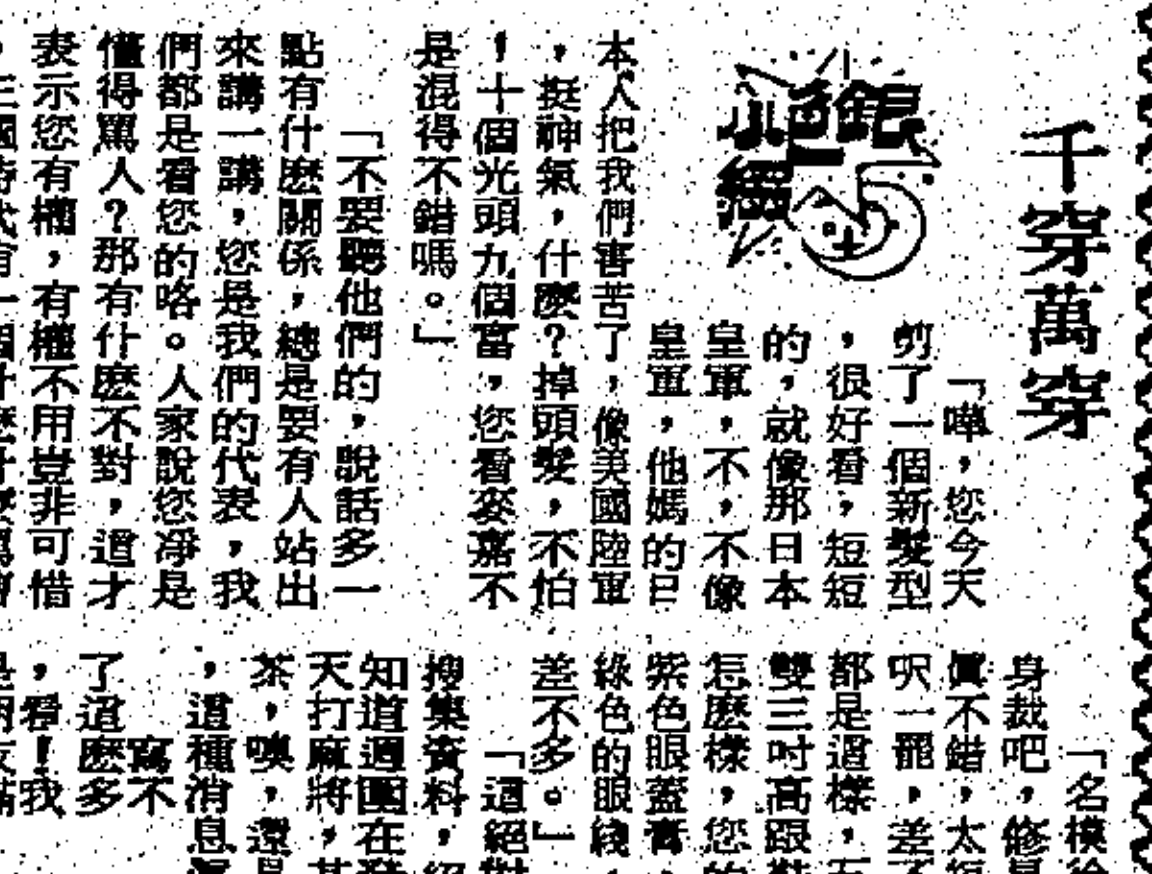 千穿萬穿
銀色小網
「嘩,您今天
剪了一個新髮型
,很好看,短短
的,就像那日本
皇軍,不,不像
皇軍,他媽的日
本人把我們害苦了,像美國陸軍
,挺神氣,什麼?掉頭髮,不怕
,十個光頭九個富,您看麥嘉不
是混得不錯嗎。」
「不要聽他們的,說話多一
點有什麽關係,總是要有人站出
來講一講,您是我們的代表,我
們都是看您的咯。人家說您淨是
懂得罵人?那有什麽不對,這才
表示您有權,有權不用豈非可惜
「名模
身裁吧,修
眞不錯,太短
呎一罷,差不
都是這樣,
雙三吋高跟
怎麽樣,您的
紫色眼蓋膏,
綠色的眼綫,
差不多。」
「這絕對
搜集資料,
知道週圍在
天打麻將,
茶,噢,還
,這種消息
寫不
了這麽多
,看!我